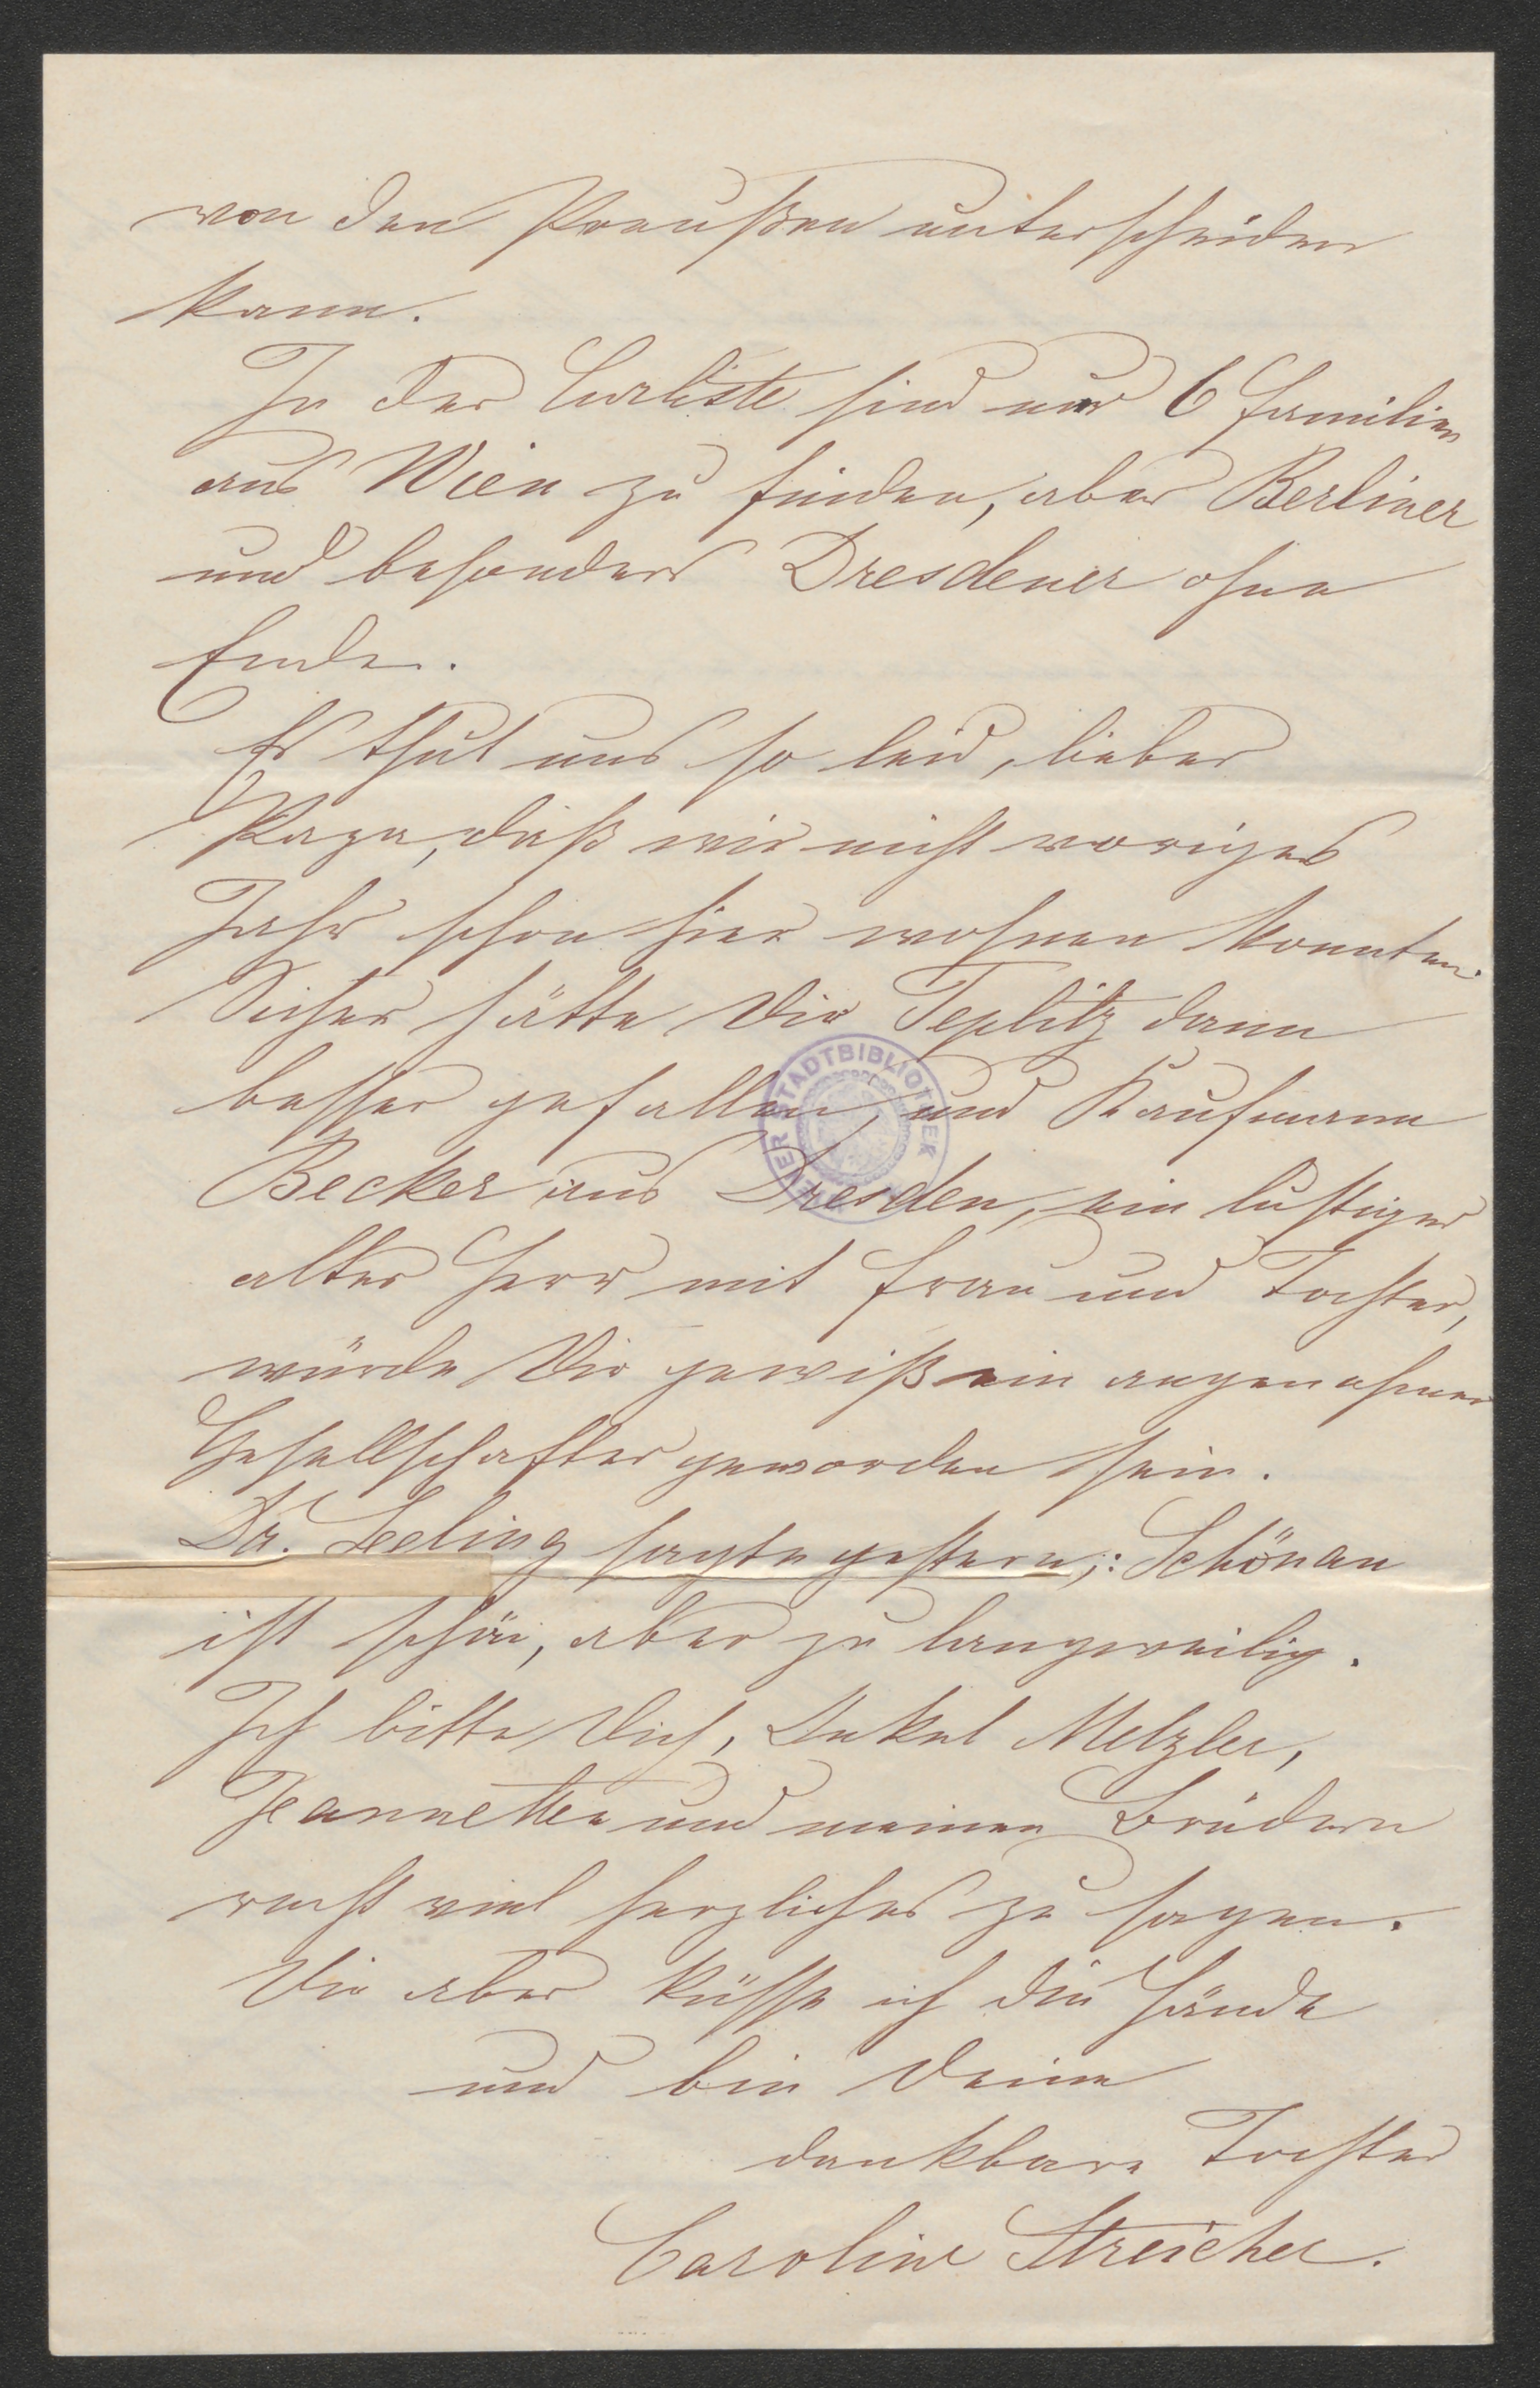 von den Preußen unterscheiden
kann.
In der Curliste sind nur 6 Familien
aus Wien zu finden, aber Berliner
und besonders Dresdener ohne
Ende.
Es thut uns so leid, lieber
Papa, daß wir nicht voriges
Jahr schon hier wohnen konnten.
Sicher hätte Dir Teplitz dann
besser gefallen, und Kaufmann
Becker aus Dresden, ein lustiger
alter Herr mit Frau und Tochter,
würde Dir gewiß ein angenehmer
Gesellschafter geworden sein.
Dr. Seeling sagte gestern: Schönau
ist schön, aber zu langweilig.
Ich bitte Dich, Onkel Metzler,
Jeannette und meinen Brüdern
recht viel herzliches zu sagen.
Dir aber küsse ich die Hände
und bin Deine
dankbare Tochter
Caroline Streicher.
WIENER STADTBIBLIOTHEK